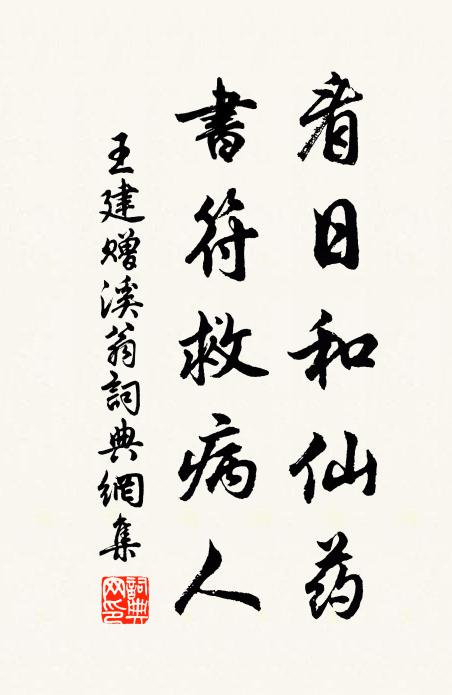 看日和仙药
書符救病人
王建赠溪翁詞典網集
詞典网印